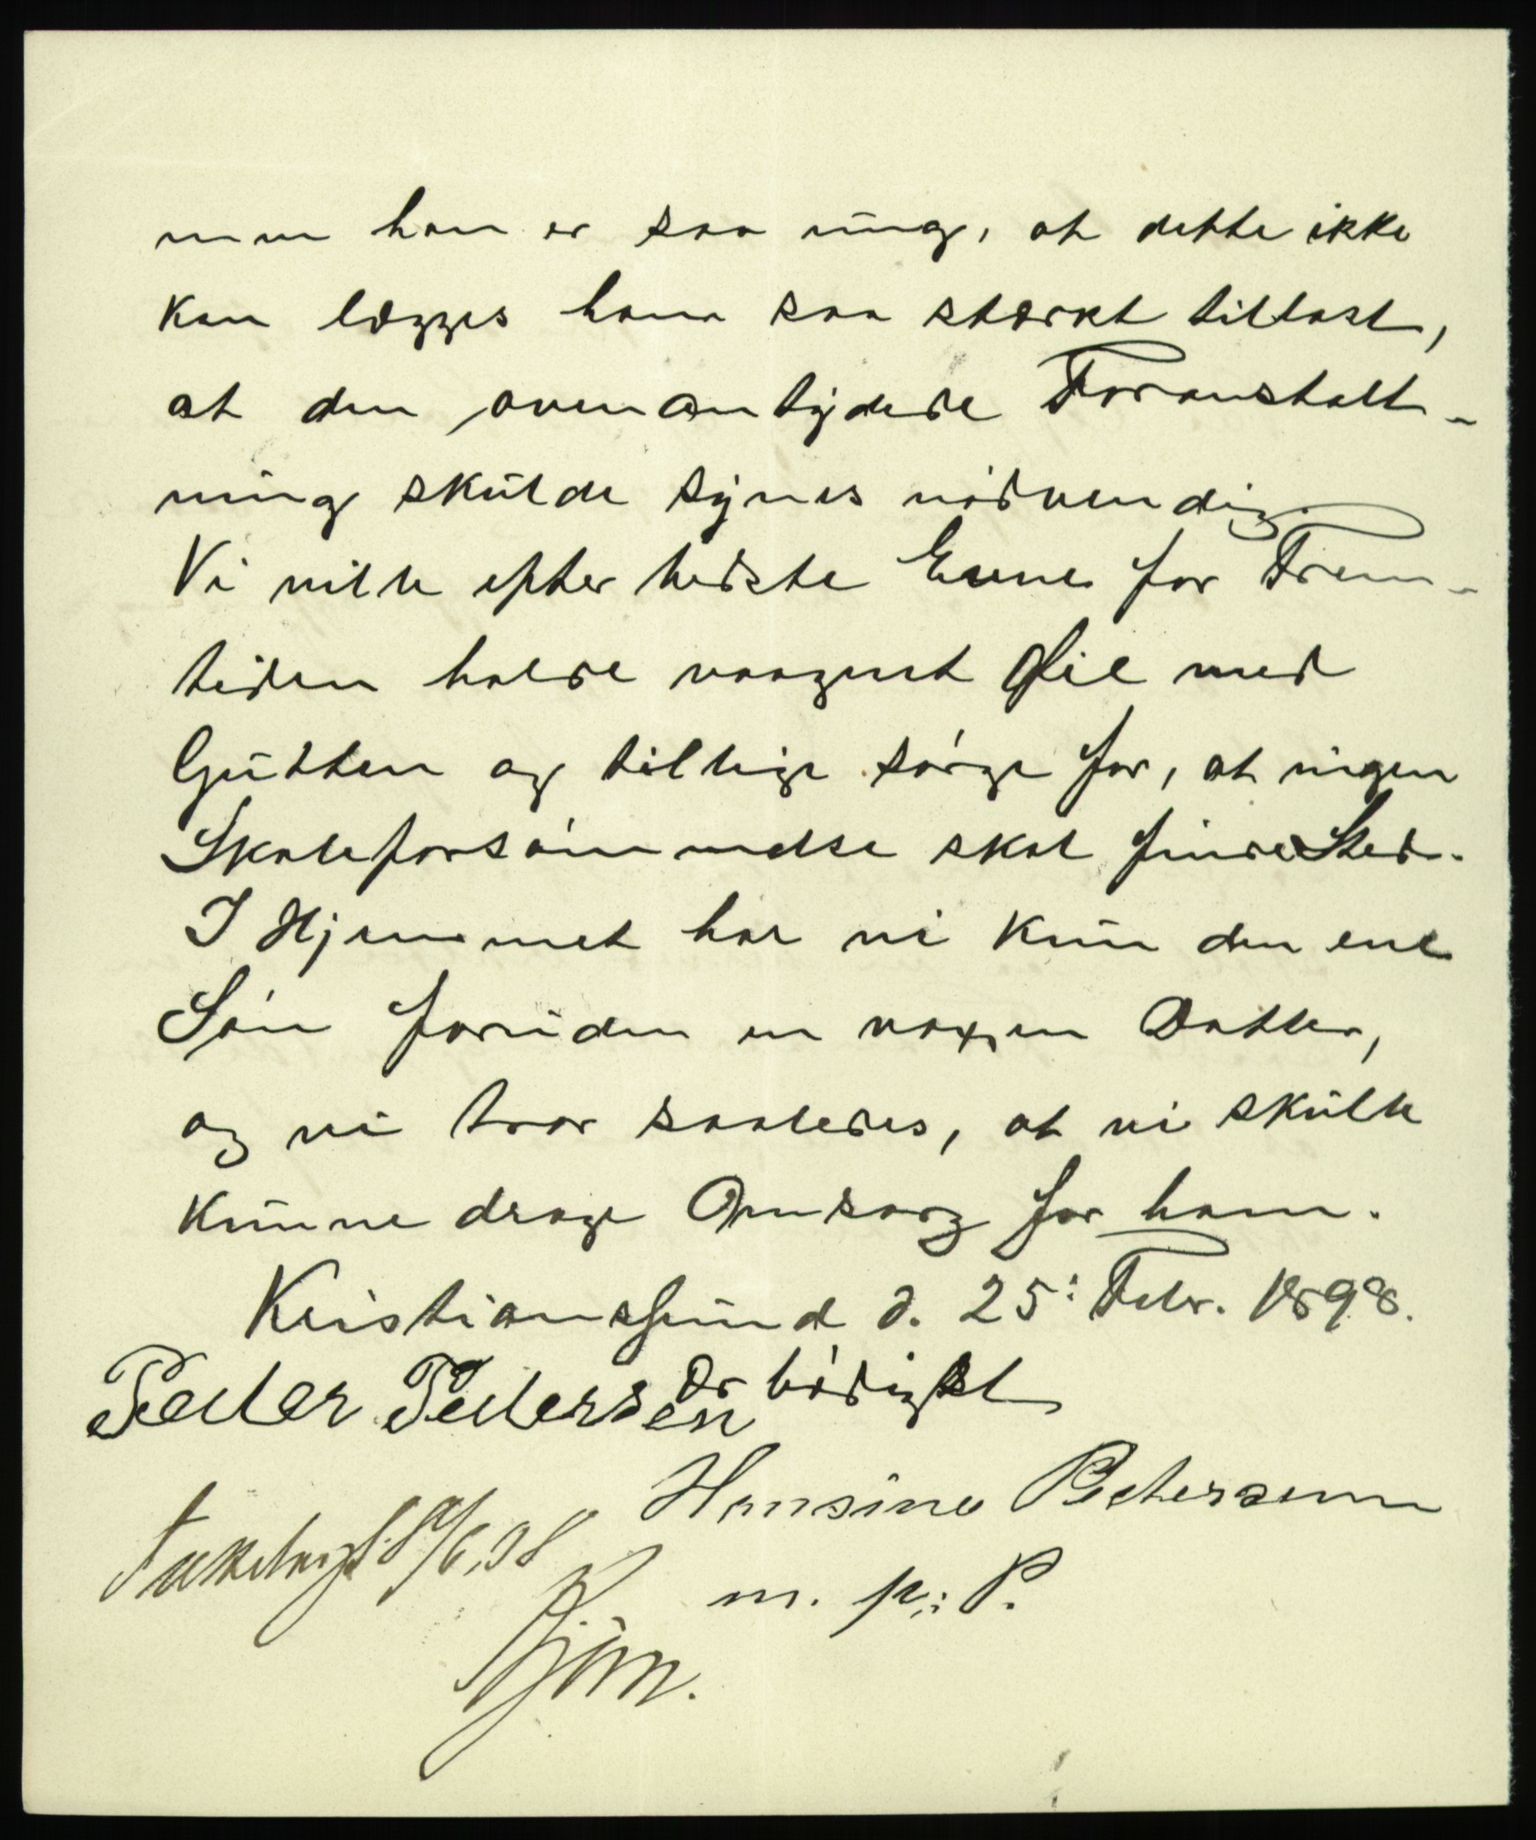 men han er saa ung, at dette ikke
kan lægges ham saa stærkt tillast,
at den ovenantydede Foranstalt-
ning skulde synes nødvendig.
Vi ville efter bedste Evne for Frem-
tiden holde vaagent Øie med
Gutten og tillige sørge for, at ingen
Skoleforsømmelse skal finde Sted.
I Hjemmet har vi kun den ene
Søn foruden en voxen Datter,
og vi tror saaledes, at vi skulle
kunne drage Omsorg for ham.
Kristianssund d. 25: Febr. 1898.
Ærbødigst
Peder Pedersen
Hansine Pedersen
m. p: P.